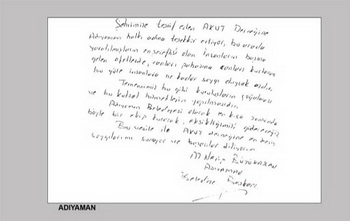 Şehrimize teşrif eden AKUT Derneğine
Adıyaman halkı adına teşekkür ediyor, bu arada
yaratılmışların en şereflisi olan insanların başına
gelen afetlerde, canları pahasına canları kurtaran
bu yüce insanlara ne kadar saygı duysak azdır.
Temennimiz bu gibi kuruluşların çoğalması
ve bu kutsal hizmetlerin yayılmasıdır.
Adıyaman Belediyesi olarak en kısa zamanda
böyle bir ekip kurarak, eksikliğimizi gidereceğiz
Bu vesile ile AKUT derneğine en derin
saygılarımı sunuyor ve başarılar diliyorum
M. Necip Büyükaslan
Adıyaman
Belediye Başkanı
ADIYAMAN